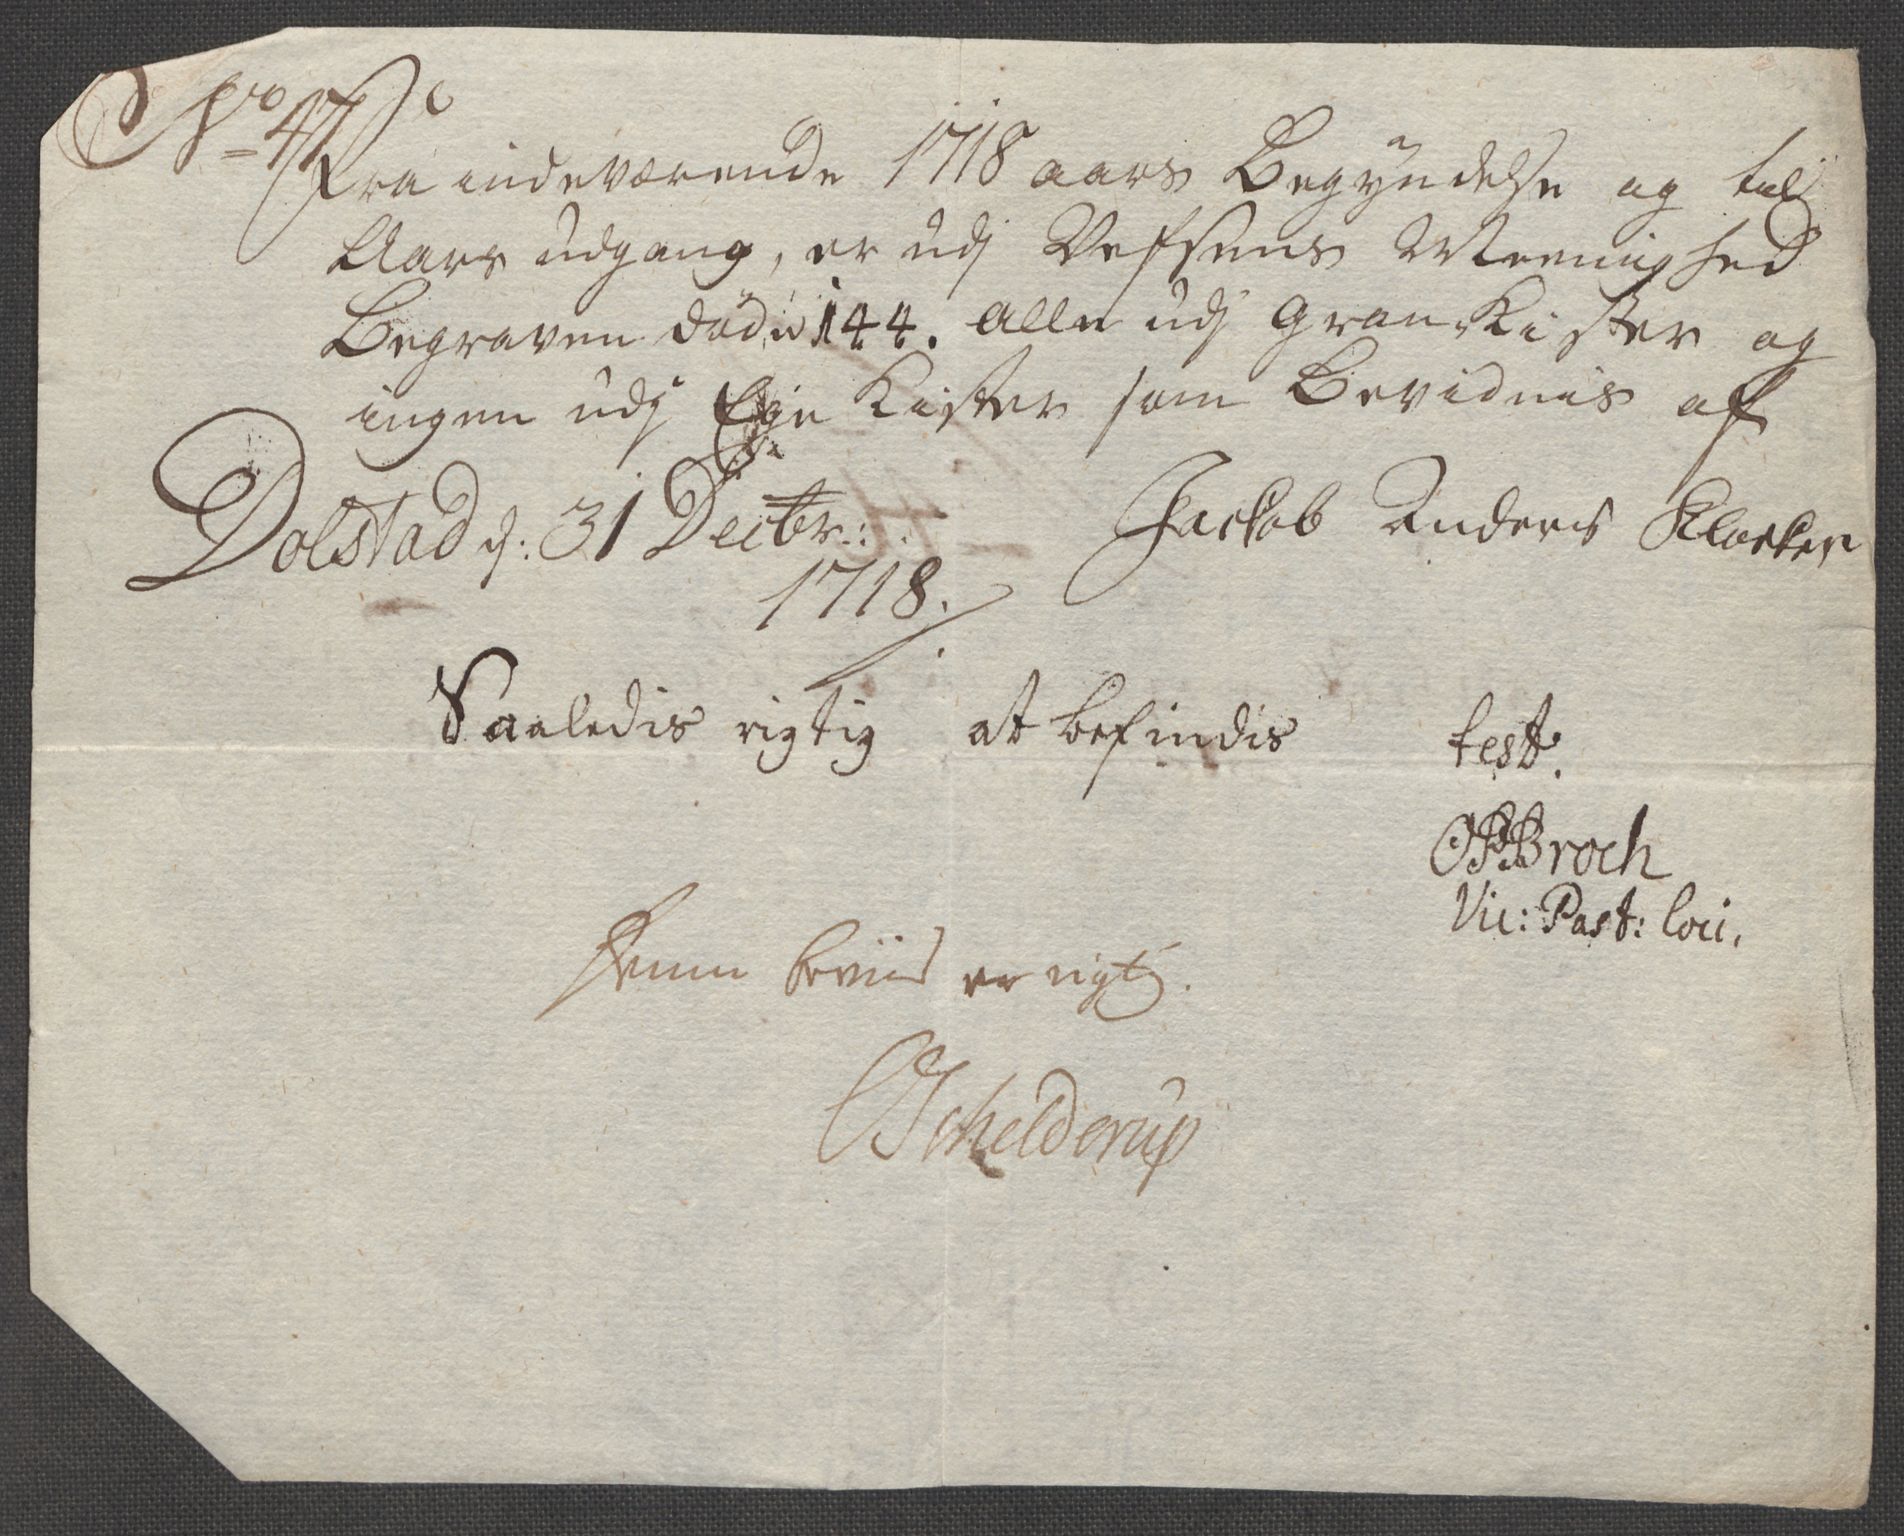 No 47
Fra indeværende 1718 aars Begyndelse og til
Aars udgang, er udj Vefsens Meenighed
Begraven døde 144. alle udj Gran Kister og
ingen udj Ege Kister som Bevidnis af
Dolstad d: 31 Decbr: Jackob Anders Klocker
1718.
Saaledis rigtig at befindis test.
OPBroch
Vic: Past: loci.
Denne beviis er rigt.
Schelderup